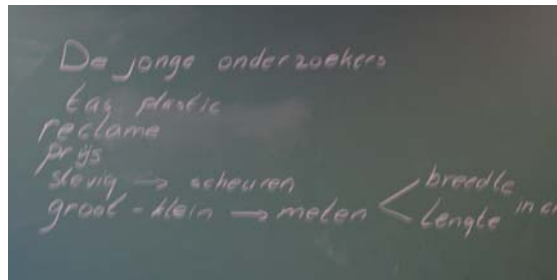 De jonge onderzoekers
tas plastic
reclame
prijs
stevig → scheuren
groot - klein → meten < breedte
lengte in